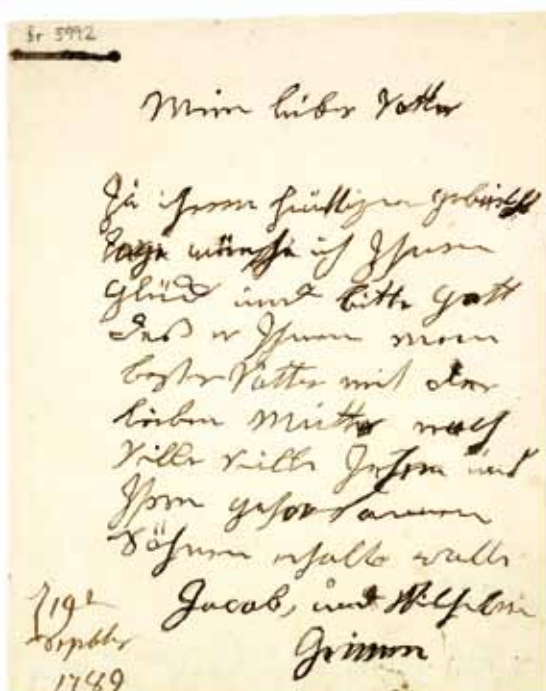 Gr 5992
Mein lieber Vatter
Zu ihrem heuttigen gebuhrts
tage wünsche ich Ihnen
Glück und bitte gott
daß er Ihnen mein
bester Vatter mit der
lieben Mutter noch
Ville Ville Jahre und
Ihre gehorsamen
Söhnen erhalte wolle
Jacob, und Wilhelm
Grimm
19t
Septbr
1789